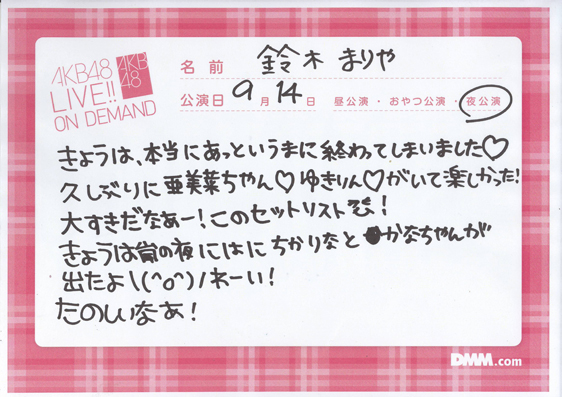 AKB48
LIVE!!
ON DEMAND
AKB
48
名前 鈴木まりや
公演日 9月14日 昼公演・おやつ公演・夜公演
きょうは、本当にあっというまに終わってしまいました♡
久しぶりに亜美菜ちゃん♡ゆきりん♡がいて楽しかった!
大すきだなあー!このセットリスト
きょうは嵐の夜にはにちかりなとかなちゃんが
出たよ\(^o^)/わーい!
たのしいなあ!
DMM.com